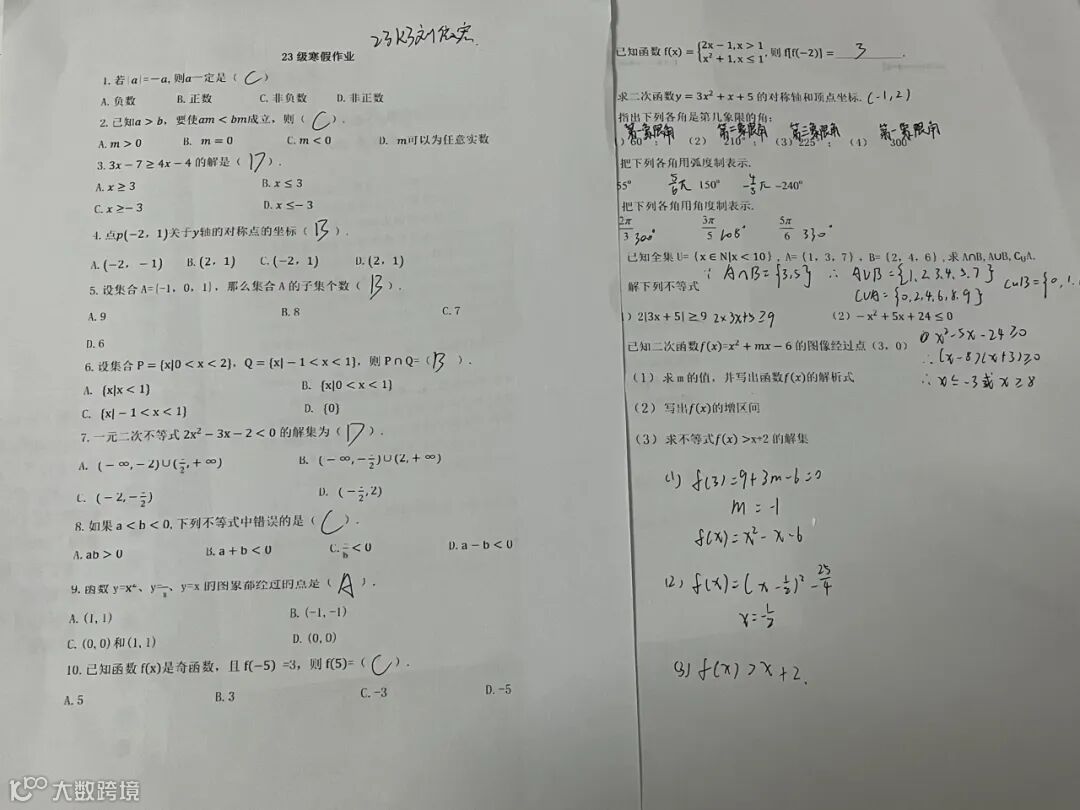 23级寒假作业
1. 若|a|=−a, 则a一定是（ C ）
A. 负数 B. 正数 C. 非负数 D. 非正数
2. 已知a＞b，要使am＜bm成立，则（ C ）.
A. m＞0 B. m＝0 C. m＜0 D. m可以为任意实数
3. 3x−7≥4x−4的解是（ D ）.
A. x≥3 B. x≤3
C. x≥−3 D. x≤−3
4. 点p(−2，1)关于y轴的对称点的坐标（ B ）.
A. (−2，−1) B. (2，1) C. (−2，1) D. (2，1)
5. 设集合A={-1，0，1}，那么集合A的子集个数（ B ）.
A. 9 B. 8 C. 7
D. 6
6. 设集合P={x|0＜x＜2}，Q={x|−1＜x＜1}，则P∩Q=（ B ）.
A. {x|x＜1} B. {x|0＜x＜1}
C. {x|−1＜x＜1} D. {0}
7. 一元二次不等式2x²−3x−2＜0的解集为（ D ）.
A. (−∞,−2)∪( ,+∞) B. (−∞,− )∪(2,+∞)
C. (−2,− ) D. (− ,2)
8. 如果a＜b＜0, 下列不等式中错误的是（ C ）.
A. ab＞0 B. a+b＜0 C. b＜0 D. a−b＜0
9. 函数y=x²、y= 、y=x的图象都经过的点是（ A ）.
A. (1, 1) B. (-1, -1)
C. (0, 0)和(1, 1) D. (0, 0)
10. 已知函数f(x)是奇函数，且f(−5)=3，则f(5)=（ C ）.
A. 5 B. 3 C. −3 D. −5
已知函数f(x)={2x−1,x＞1
x²+1,x≤1, 则f[f(−2)]= 3 .
求二次函数y=3x²+x+5的对称轴和顶点坐标. (-1,2)
指出下列各角是第几象限的角：
第一象限角 第三象限角 第三象限角 第一象限角
）60 ； （2）210 ； （3）225 ； （4）300
把下列各角用弧度制表示.
55° 5/6π 150° -4/3π −240°
把下列各角用角度制表示.
2π/3 300° 3π/5 108° 5π/6 330°
已知全集U={x∈N|x＜10}，A={1，3，7}，B={2，4，6}, 求A∩B, A∪B, CᵤA.
∵ A∩B={3,5} ∴ A∪B={1,2,3,4,5,7} CuB={0,1,
CUA={0,2,4,6,8,9}
解下列不等式
）2|3x+5|≥9 2×3x+5≥9 （2）−x²+5x+24≤0
x²-5x-24≥0
∴(x-8)(x+3)≥0
∴x≤-3或x≥8
已知二次函数f(x)=x²+mx−6的图像经过点（3，0）
（1） 求m的值，并写出函数f(x)的解析式
（2） 写出f(x)的增区间
（3） 求不等式f(x)＞x+2的解集
(1) f(3)=9+3m-6=0
m=-1
f(x)=x²-x-6
(2) f(x)=(x-1/2)²-25/4
(3) f(x)>x+2.
大数跨境